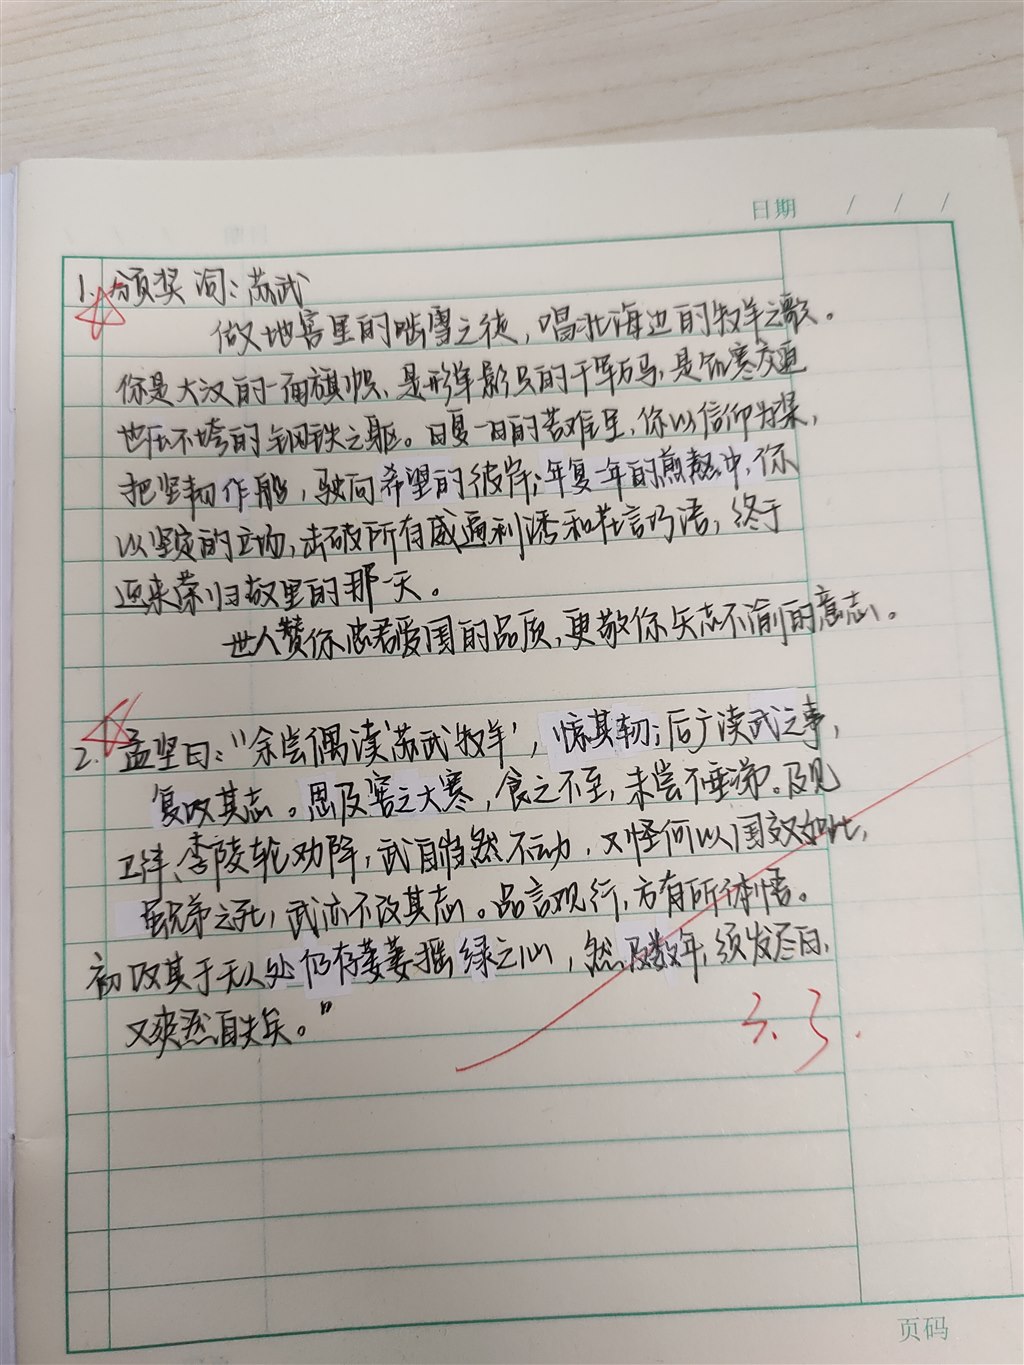 日期 / / /
1. 颁奖词：苏武
做地窖里的啮雪之徒，唱北海边的牧羊之歌。
你是大汉的一面旗帜、是形单影只的千军万马，是饥寒交迫
也压不垮的钢铁之躯。日复一日的苦难里，你以信仰为桨，
把坚韧作船，驶向希望的彼岸；年复一年的煎熬中，你
以坚定的立场，击破所有威逼利诱和花言巧语，终于
迎来荣归故里的那一天。
世人赞你忠君爱国的品质，更敬你矢志不渝的意志。
2. 孟坚曰：“余尝偶读‘苏武牧羊’，惊其韧；后广读武之事，
复叹其志。思及窖之大寒，食之不至，未尝不垂涕。及见
卫律、李陵轮劝降，武自怡然不动，又怪何以国效如此，
虽兄弟之死，武亦不改其志。品言观行，方有所体悟。
初叹其于无人处仍存萋萋摇绿之心，然及数年，须发尽白，
又爽然自失矣。”
3.3.
页码